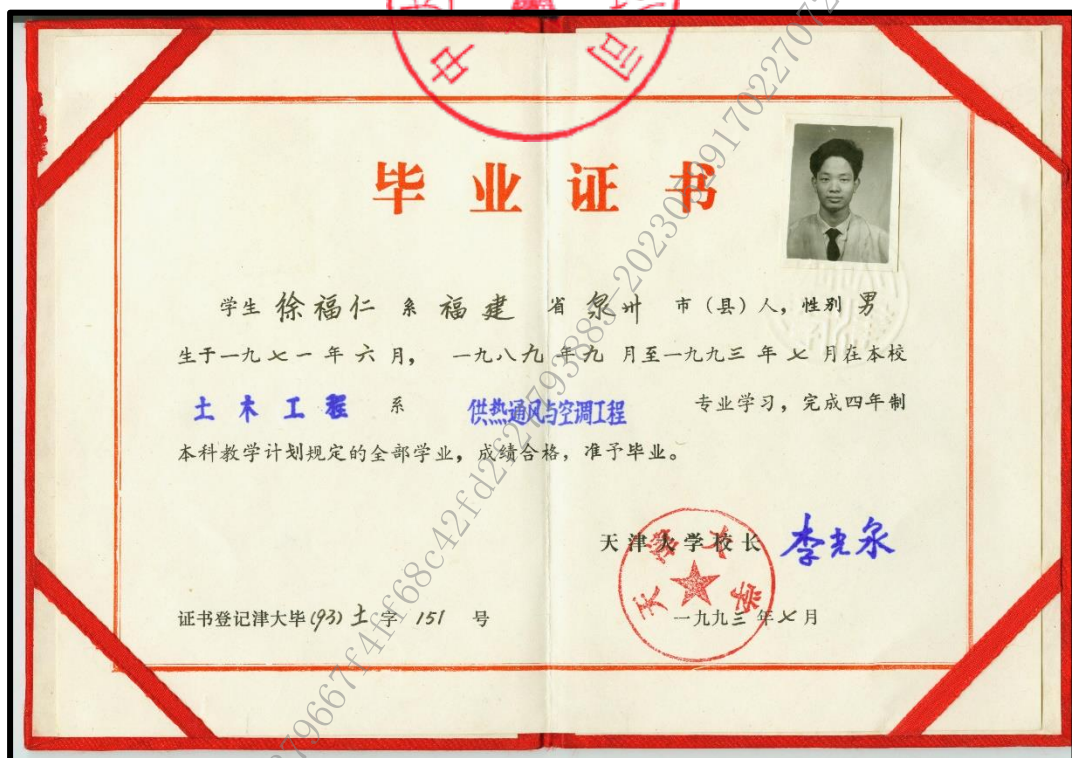 中 司
毕业证书
学生 徐福仁 系 福建 省 泉州 市（县）人，性别 男
生于一九七一年六月， 一九八九年九月至一九九三年七月在本校
土木工程 系 供热通风与空调工程 专业学习，完成四年制
本科教学计划规定的全部学业，成绩合格，准予毕业。
天津大学校长 李光泉
天津大学
一九九三年七月
证书登记津大毕(93)土字 151 号